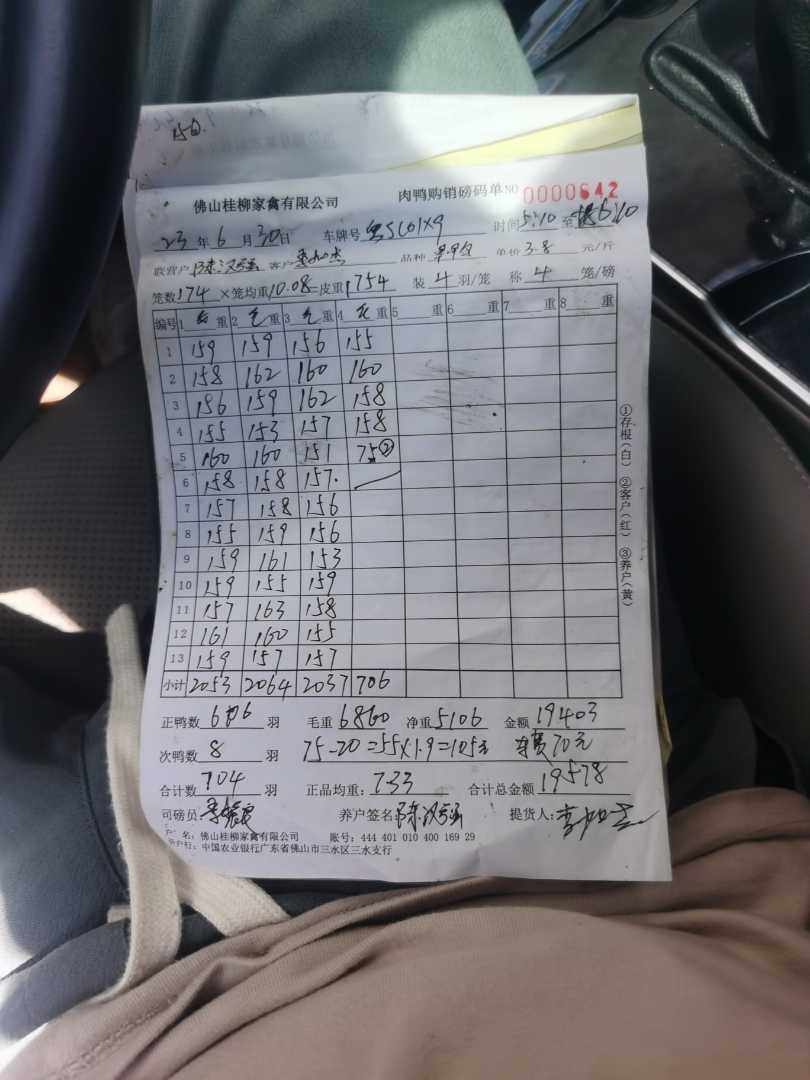 150.
佛山桂柳家禽有限公司 肉鸭购销磅码单 NO 0000642
23年6月30日 车牌号 时间5:10至
联营户 陈汉强 客户 品种 单价3.8元/斤
笼数174×笼均重10.08=皮重1754 装4羽/笼 称4笼/磅
编号 1 毛重 2 毛重 3 毛重 4 毛重 5 重 6 重 7 重 8 重
1 159 159 156 155
2 158 162 160 160
3 156 159 162 158
4 155 153 157 158
5 160 160 151 75②
6 158 158 157.
7 157 158 156
8 155 159 156
9 159 161 153
10 159 155 159
11 157 163 158
12 161 160 155
13 159 157 157
小计 2053 2064 2037 706
①存根(白) ②客户(红) ③养户(黄)
正鸭数 羽 毛重6860 净重5106 金额19403
次鸭数8羽 75-20=55×1.9=105元 车费70元
合计数704羽 正品均重:7.33 合计总金额19578
司磅员: 养户签名 陈汉强 提货人:
户 名: 佛山桂柳家禽有限公司 账号: 444 401 010 400 169 29
开户行: 中国农业银行广东省佛山市三水区三水支行